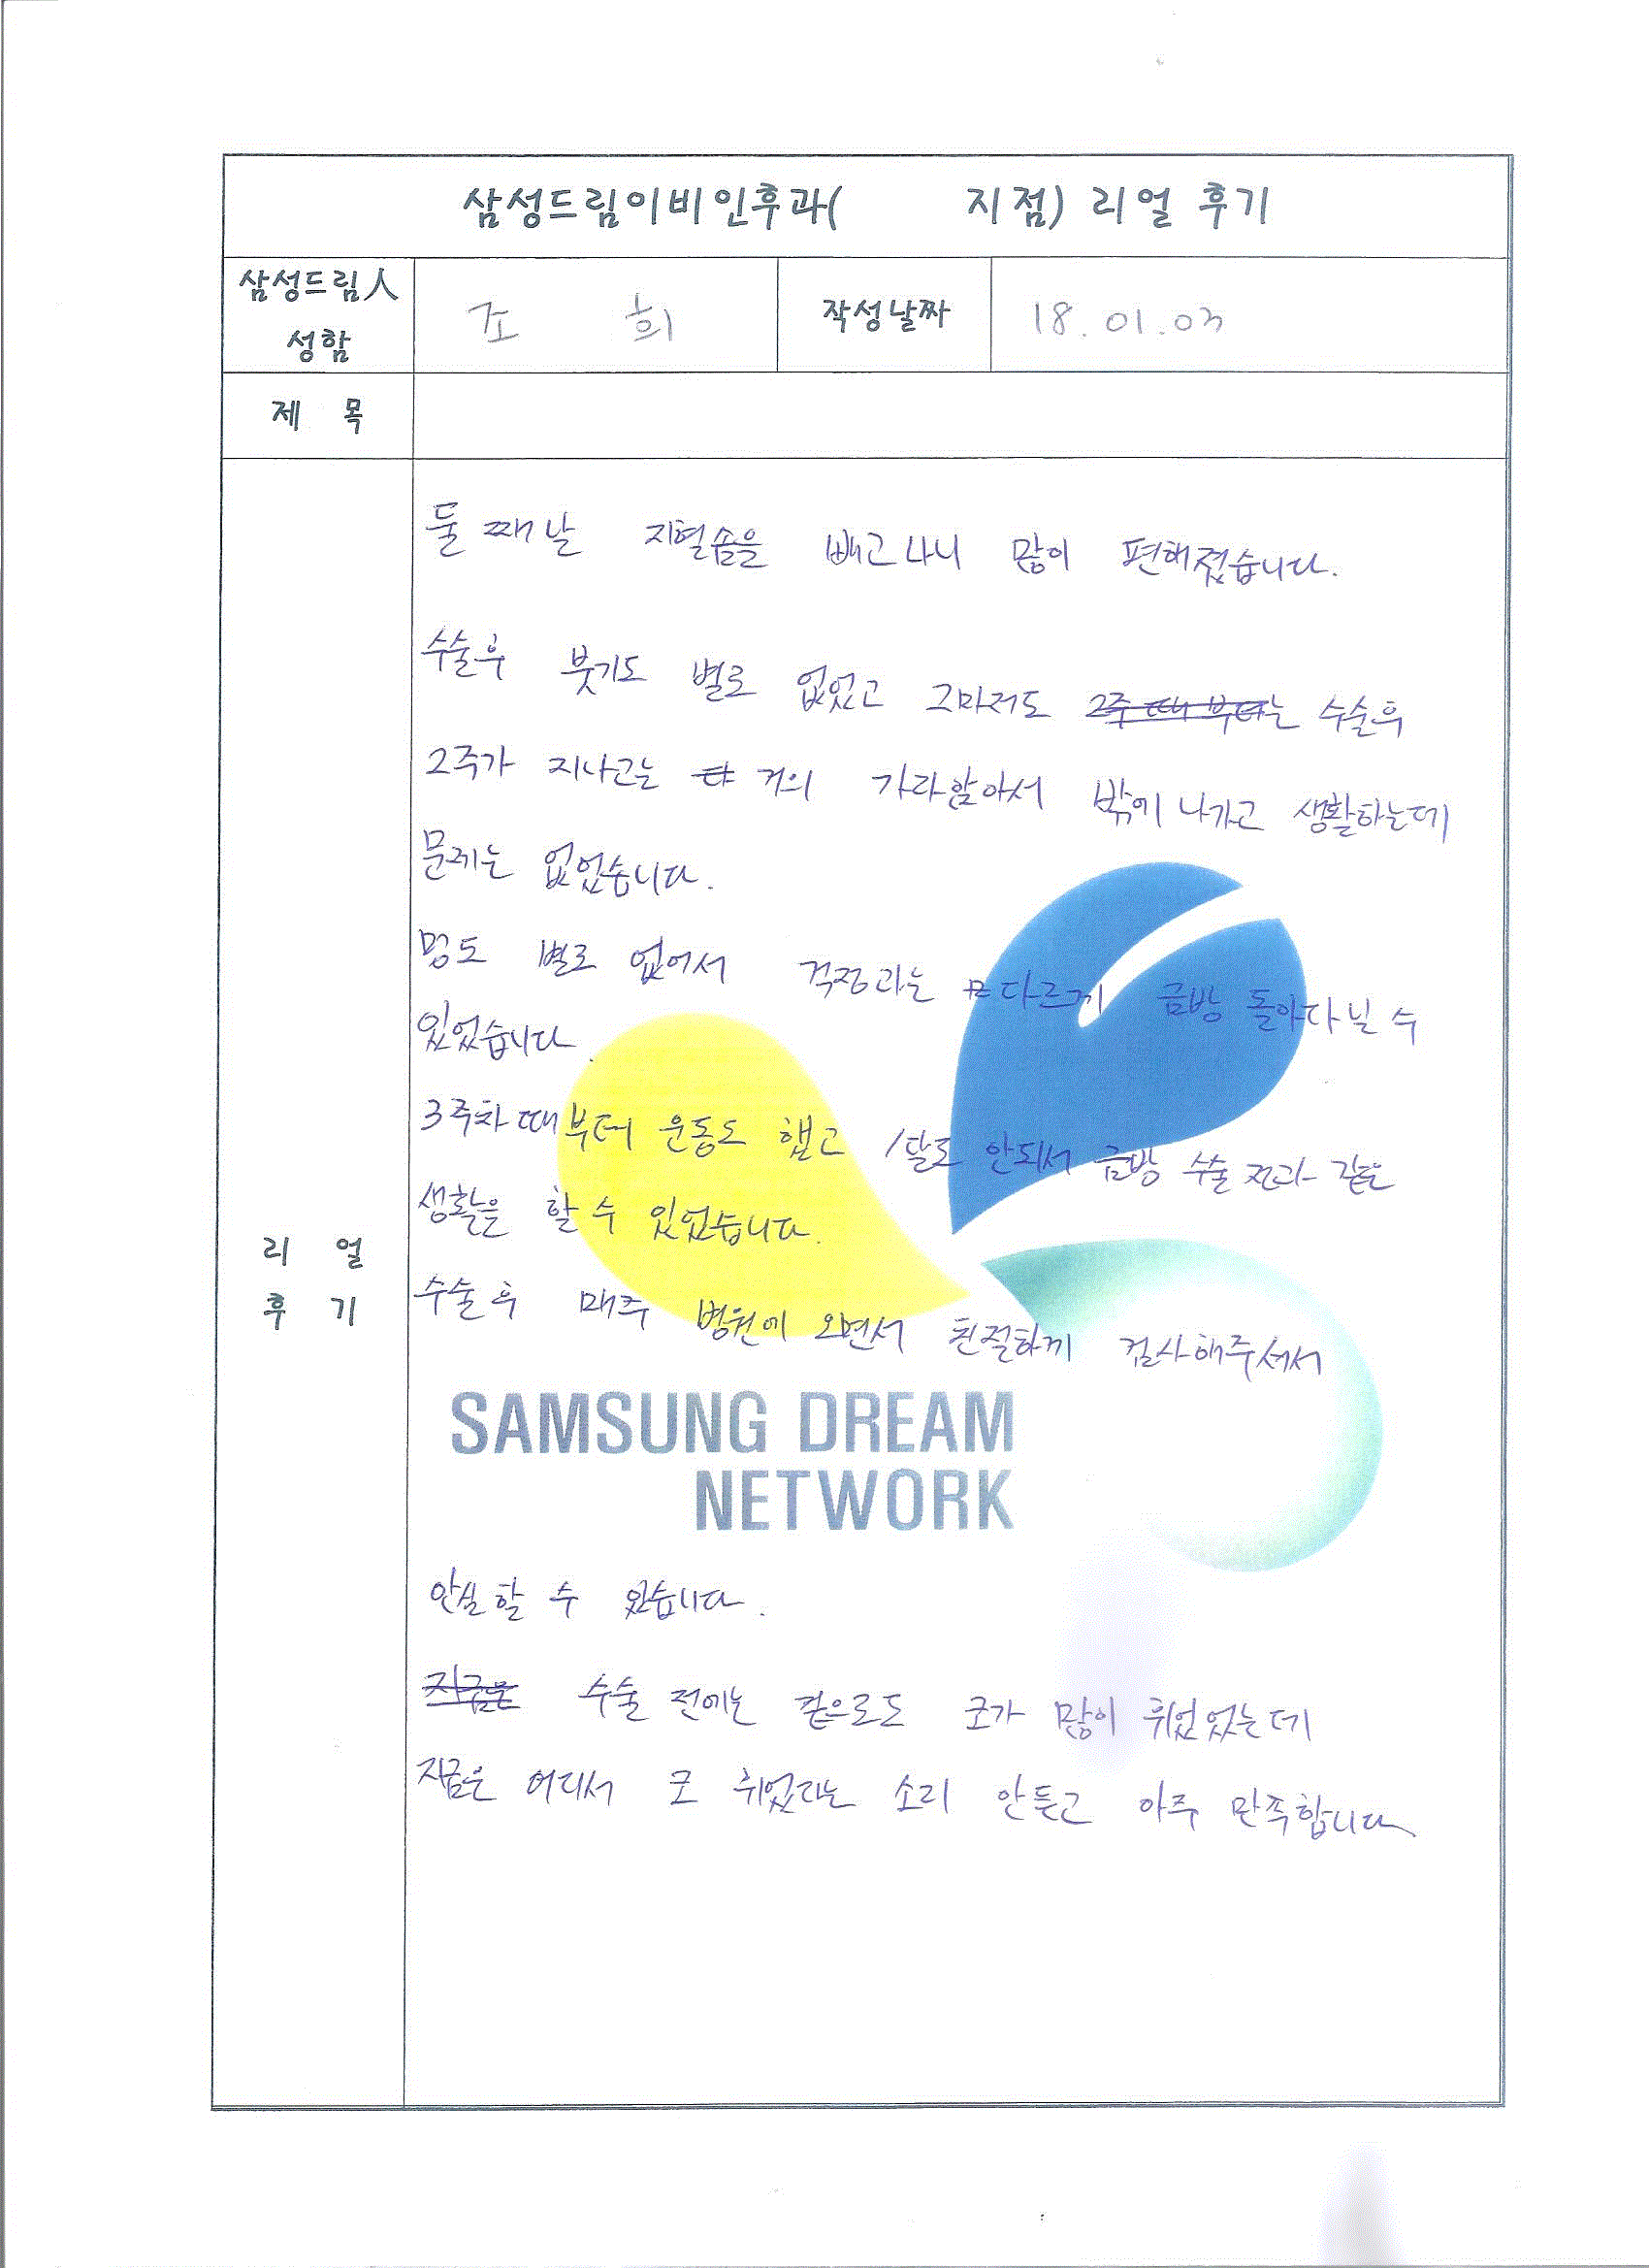 삼성드림이비인후과(      지점) 리얼 후기
삼성드림人
성함
조 희
작성날짜
18.01.03
제 목
둘째날 지혈솜을 빼고나니 많이 편해졌습니다.
수술후 붓기도 별로 없었고 그마저도 2주 때 부터는 수술후
2주가 지나고는 다 거의 가라앉아서 밖에 나가고 생활하는데
문제는 없었습니다.
멍도 별로 없어서 걱정과는 다르게 금방 돌아다닐 수
있었습니다.
3주차 때부터 운동도 했고 1달도 안되서 금방 수술 전과 같은
생활을 할 수 있었습니다.
수술 후 매주 병원에 오면서 친절하게 검사해주셔서
SAMSUNG DREAM
NETWORK
안심 할 수 있습니다.
지금은 수술 전에는 겉으로도 코가 많이 휘었었는데
지금은 어디서 코 휘었다는 소리 안듣고 아주 만족합니다.
리 얼
후 기